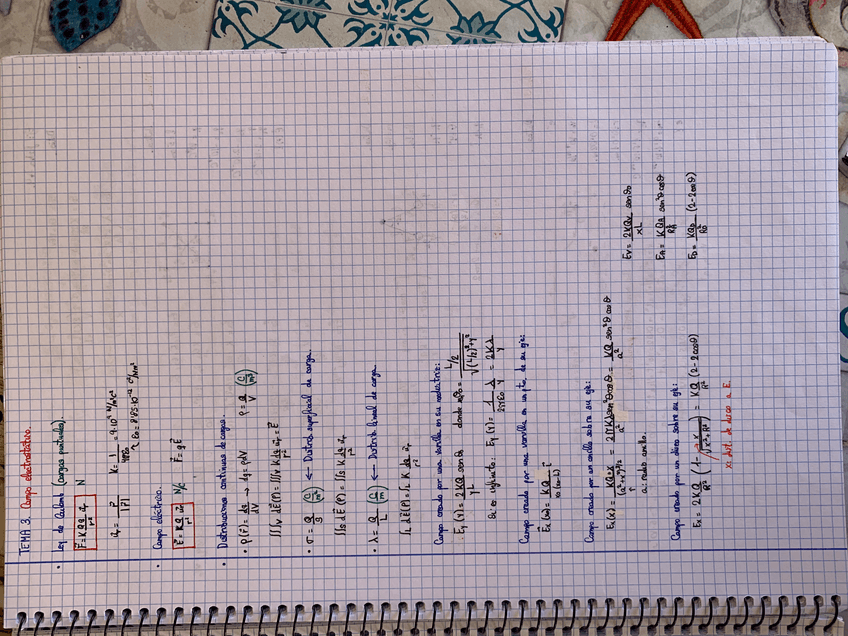 TEMA 3. Campo electrostático.
• Ley de Coulomb (cargas puntuales).
F⃗ = K Qq/r² u⃗r N
u⃗r = r⃗/|r⃗| K = 1/4πε₀ = 9·10⁹ N/m²C²
ε₀ = 8'85·10⁻¹² C²/Nm²
• Campo eléctrico.
E⃗ = KQ/r² u⃗r N/C F⃗ = qE⃗
• Distribuciones continuas de cargas.
• ρ(r⃗) = dq/dV → dq = ρdV ρ = Q/V (C/m³)
∫∫∫v dE⃗(P) = ∫∫∫ K dq/r² u⃗r = E⃗
• σ = Q/S (C/m²) ← Distrib superficial de carga.
∫∫s dE⃗(P) = ∫∫s K dq/r² u⃗r
• λ = Q/L (C/m) ← Distrib. lineal de carga.
∫L dE⃗(P) = ∫L K dq/r² u⃗r
Campo creado por una varilla en su mediatriz:
Ey(y) = 2KQ/yL senθ₀ donde senθ₀ = L/2 / √((L/2)²+y²)
Si es infinito: Ey(y) = 1/2πε₀ λ/y = 2Kλ/y
Campo creado por una varilla en un pto. de su eje:
E⃗x(x₀) = KQ/x₀(x₀-L) i⃗
Campo creado por un anillo sobre su eje:
Ex(x) = KQ·x/(a²+x²)^3/2 = 2πKλsen²θcosθ/a² = KQ/a² sen²θ cosθ
a: radio anillo.
Campo creado por un disco sobre su eje:
Ex = 2KQ/R² (1 - x/√(x²+R²)) = KQ/R² (2-2cosθ)
x: dist. de disco a E.
Ev = 2KQv/xL senθ₀
EA = KQA/RA² sen²θcosθ
ED = KQD/RD² (2-2cosθ)